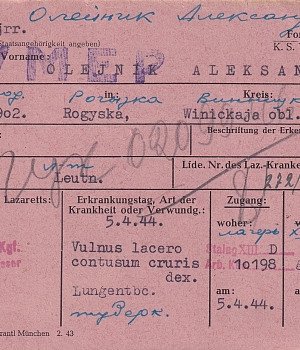 Олейник Алексан
irr.
Staatsangehörigkeit angeben)
K. S.
Vorname:
УМЕР
OLEJNIK ALEKSAN
in:
Kreis:
1902. Rogyská, Winickaja obl.
Beschriftung der Erken
л-т
Leutn.
Lfde. Nr. des Laz.-Kranke
Lazaretts:
Erkrankungstag, Art der
Krankheit oder Verwundg.:
Zugang:
5.4.44.
woher:
лагерь X
Kgf.
Vulnus lacero
Stalag XIII D
contusum cruris
Arb. K. 10198
dex.
Lungentbc.
am:
туберк.
5.4.44.
Grantl München 2. 43